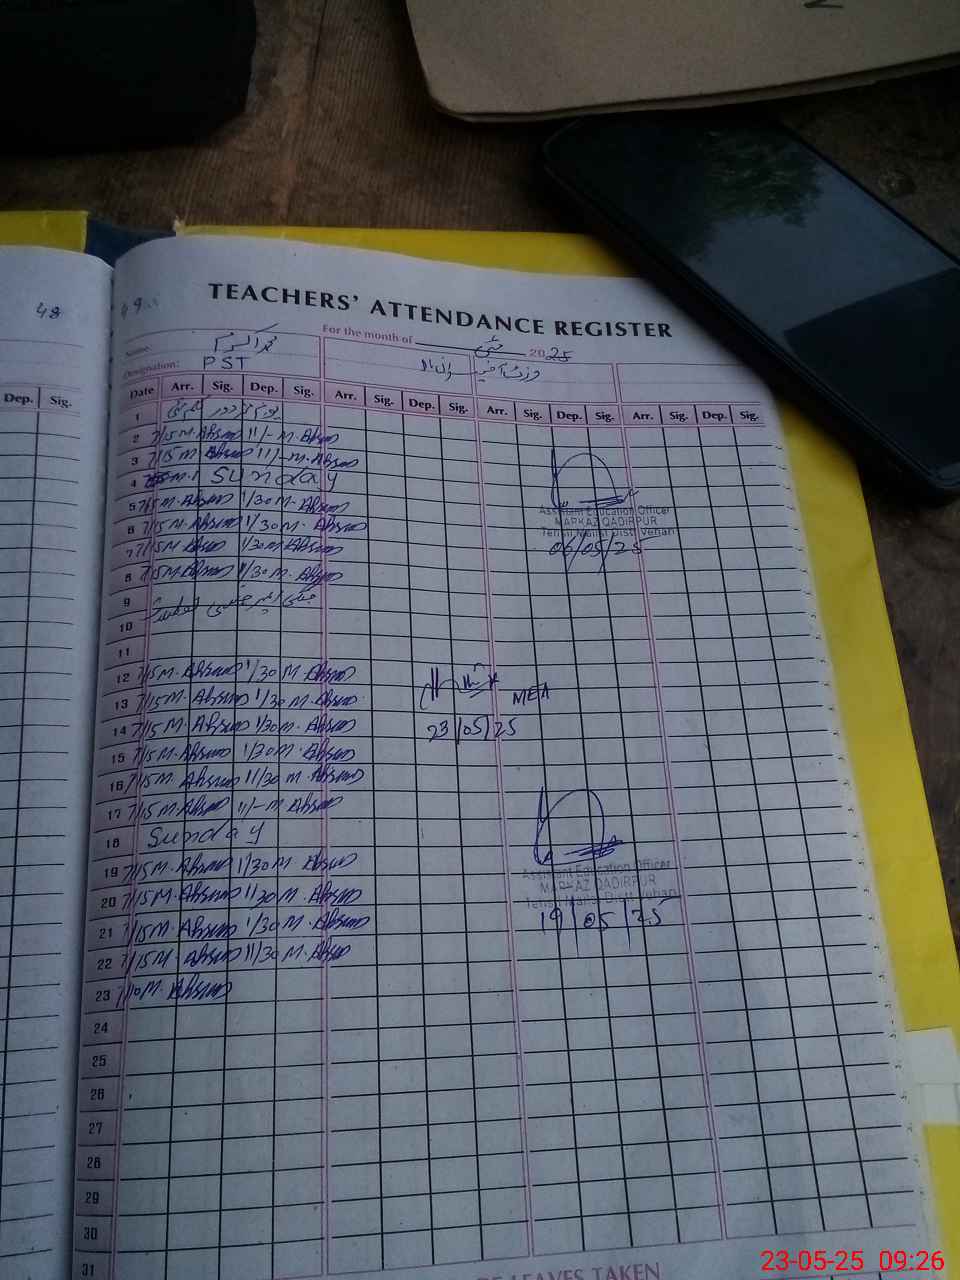 48
49
TEACHERS' ATTENDANCE REGISTER
Name: محمد اکرم
For the month of مئی 2025
Designation: PST
Dep. Sig.
Date Arr. Sig. Dep. Sig. Arr. Sig. Dep. Sig. Arr. Sig. Dep. Sig. Arr. Sig. Dep. Sig.
1 یوم مزدور یکم مئی
2 7/15 M. Ahsan 11/- M. Ahsan
3 7/15 M. Ahsan 11/- M. Ahsan
4 Sunday
5 7/15 M. Ahsan 1/30 M. Ahsan
6 7/15 M. Ahsan 1/30 M. Ahsan
7 7/15 M. Ahsan 1/30 M. Ahsan
8 7/15 M. Ahsan 1/30 M. Ahsan
Assistant Education Officer
MARKAZ QADIRPUR
Tehsil Mailsi Distt Vehari
06/05/25
9
10
11
12 7/15 M. Ahsan 1/30 M. Ahsan
13 7/15 M. Ahsan 1/30 M. Ahsan
MEA
14 7/15 M. Ahsan 1/30 M. Ahsan
23/05/25
15 7/15 M. Ahsan 1/30 M. Ahsan
16 7/15 M. Ahsan 11/30 M. Ahsan
17 7/15 M. Ahsan 11/- M. Ahsan
18 Sunday
19 7/15 M. Ahsan 1/30 M. Ahsan
20 7/15 M. Ahsan 1/30 M. Ahsan
21 7/15 M. Ahsan 1/30 M. Ahsan
22 7/15 M. Ahsan 11/30 M. Ahsan
Assistant Education Officer
MARKAZ QADIRPUR
Tehsil Mailsi Distt Vehari
19/05/25
23 7/10 M. Ahsan
24
25
26
27
28
29
30
31
LEAVES TAKEN
23-05-25 09:26